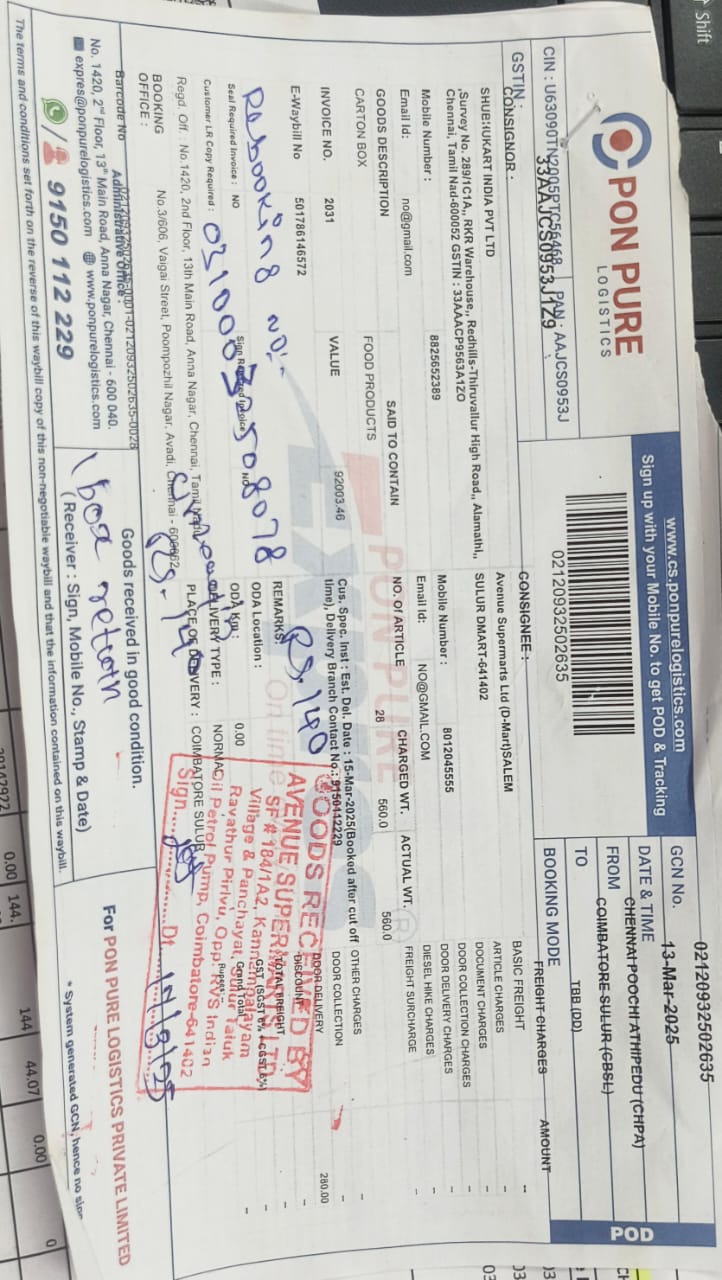 PON PURE
LOGISTICS
CIN : U63090TN2005PTC56468 PAN : AAJCS0953J
GSTIN : 33AAJCS0953J1Z9
www.cs.ponpurelogistics.com
Sign up with your Mobile No. to get POD & Tracking
02120932502635
GCN No. 02120932502635
DATE & TIME 13-Mar-2025
FROM CHENNAI POOCHI ATHIPEDU (CHPA)
TO COIMBATORE-SULUR (CBSL)
BOOKING MODE TBB (DD)
POD
CONSIGNOR :
SHUBHUKART INDIA PVT LTD
,Survey No. 289/1C1A,, RKR Warehouse,, Redhills-Thiruvallur High Road,, Alamathi,,
Chennai, Tamil Nad-600052 GSTIN : 33AAACP9563A1ZO
Mobile Number : 8825652389
Email Id: no@gmail.com
CONSIGNEE :
Avenue Supermarts Ltd (D-Mart)SALEM
SULUR DMART-641402
Mobile Number : 8012045555
Email Id: NO@GMAIL.COM
FREIGHT CHARGES AMOUNT
BASIC FREIGHT --
ARTICLE CHARGES --
DOCUMENT CHARGES --
DOOR COLLECTION CHARGES --
DOOR DELIVERY CHARGES --
DIESEL HIKE CHARGES --
FREIGHT SURCHARGE --
OTHER CHARGES --
DOOR COLLECTION --
DOOR DELIVERY 280.00
DISCOUNT --
TOTAL FREIGHT --
GST (SGST 6% + CGST 6%) --
Grand Total --
Rupees :
GOODS DESCRIPTION SAID TO CONTAIN NO. OF ARTICLE CHARGED WT. ACTUAL WT.
CARTON BOX FOOD PRODUCTS 28 560.0 560.0
INVOICE NO. 2031 VALUE 92003.46
E-Waybill No 501786146572
Cus. Spec. Inst : Est. Del. Date : 15-Mar-2025(Booked after cut off
time), Delivery Branch Contact No.: 9150412229
REMARKS
ODA Location :
ODA Km : 0.00
DELIVERY TYPE : NORMAL
PLACE OF DELIVERY : COIMBATORE SULUR
Rebooking no:-
03100032508078
Rs. 140
PON PURE
EXPRESS
On time
Seal Required Invoice : NO Sign Required Invoice : NO
Customer LR Copy Required :
Regd. Off. No.1420, 2nd Floor, 13th Main Road, Anna Nagar, Chennai, Tamil Nadu
BOOKING OFFICE : No.3/606, Vaigai Street, Poompozhil Nagar, Avadi, Chennai - 600062
GOODS RECEIVED BY
AVENUE SUPERMARTS LTD
SF # 184/1A2, Kannampalayam
Village & Panchayat, Sulur Taluk
Ravathur Pirivu, Opp. RVS Indian
Oil Petrol Pump, Coimbatore-641402
Sign Dt
Barcode No 02120932502635-0001-02120932502635-0028
Administrative Office :
No. 1420, 2nd Floor, 13th Main Road, Anna Nagar, Chennai - 600 040.
expres@ponpurelogistics.com www.ponpurelogistics.com
9150 112 229
Goods received in good condition.
1 box return
(Receiver : Sign, Mobile No., Stamp & Date)
For PON PURE LOGISTICS PRIVATE LIMITED
* System generated GCN, hence no sign
The terms and conditions set forth on the reverse of this waybill copy of this non-negotiable waybill and that the information contained on this waybill.
Shift
0.00 144.
144 44.07 0.00 0